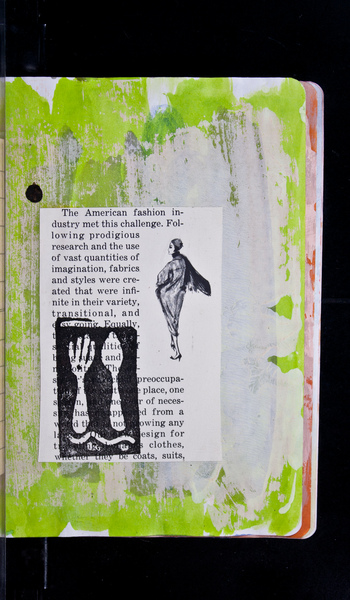 The American fashion in-
dustry met this challenge. Fol-
lowing prodigious
research and the use
of vast quantities of
imagination, fabrics
and styles were cre-
ated that were infi-
nite in their variety,
transitional, and
easy going. Equally,
preoccupa-
place, one
of neces-
has from a
not knowing any
design for
clothes,
whether they be coats, suits,